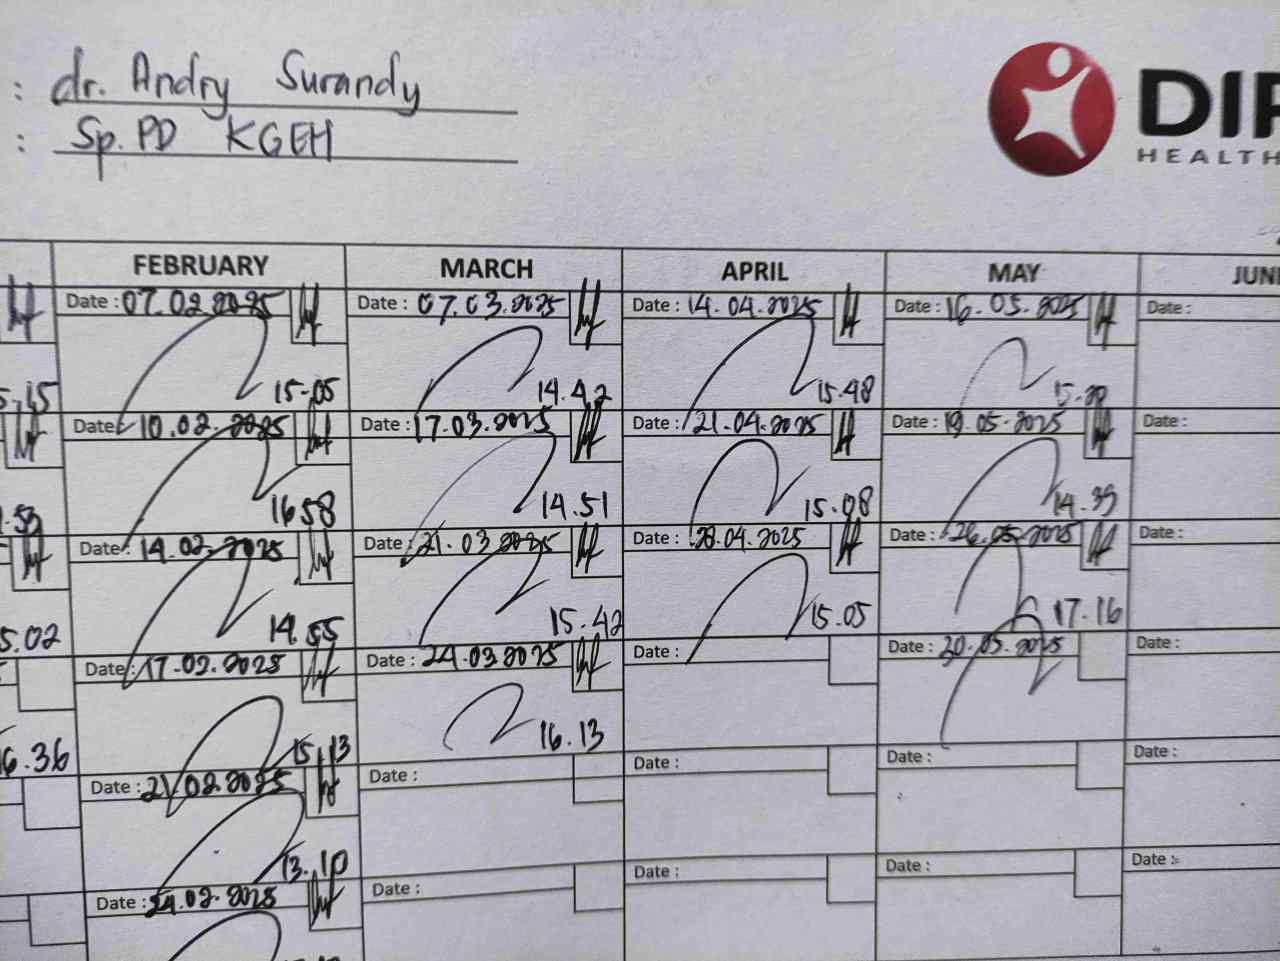 : dr. Andry Surandy
: Sp.PD KGEH
DIP
HEALTH
FEBRUARY MARCH APRIL MAY JUNE
Date : 07.02.2025 Date : 07.03.2025 Date : 14.04.2025 Date : 16.05.2025 Date :
5.15 15.05 14.42 15.48
Date : 10.02.2025 Date : 17.03.2025 Date : 21.04.2025 Date : 19.05.2025 Date :
16 58 14.51 15.08 14.39
Date : 14.02.2025 Date : 21.03 2025 Date : 28.04.2025 Date : 26.05.2025 Date :
5.02 14.55 15.42 15.05 17.16
Date : 17.02.2025 Date : 24.03.2025 Date : Date : 30.05.2025 Date :
6.36 15.13 16.13
Date : 21.02.2025 Date : Date : Date : Date :
13.10
Date : 24.02.2025 Date : Date : Date : Date :